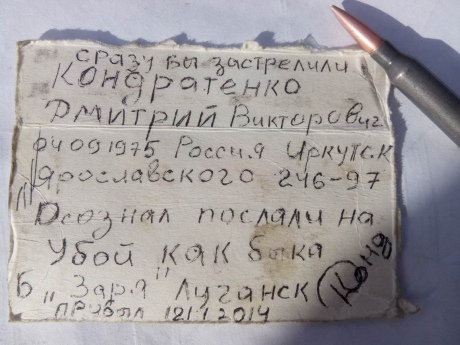 сразу бы застрелили
Кондратенко
Дмитрий Викторович
04091975 Россия Иркутск
Ярославского 246-97
Осознал послали на
убой как быка
Б "Заря" Луганск
прибыл 12 1 2014